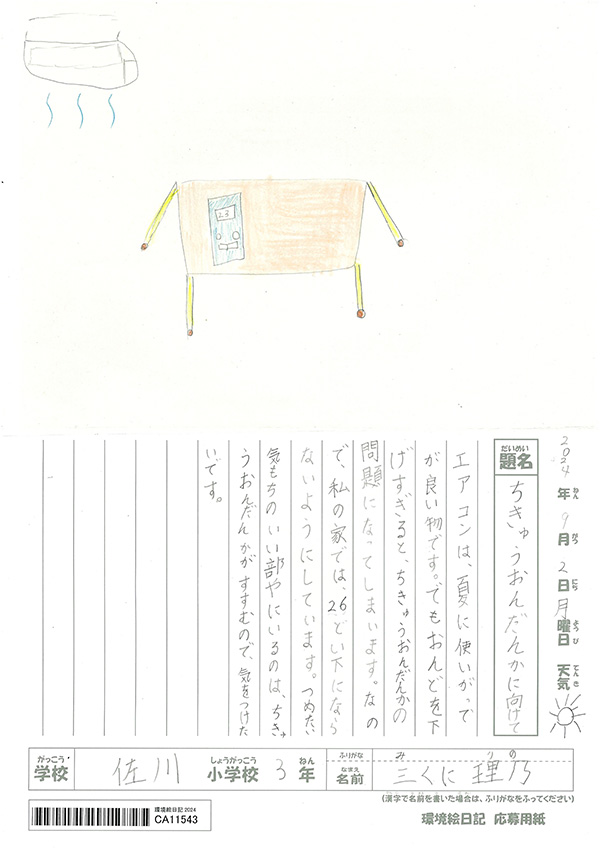 23
2024年ねん9月がつ2日にち月曜日ようび 天気てんき
題名だいめい ちきゅうおんだんかに向けて
エアコンは、夏に使いがって
が良い物です。でもおんどを下
げすぎると、ちきゅうおんだんかの
問題になってしまいます。なの
で、私の家では、26どい下になら
ないようにしています。つめたい
気もちのいい部やにいるのは、ちきゅ
うおんだんかがすすむので、気をつけた
いです。
がっこう 学校 佐川 しょうがっこう 小学校 3 ねん 年 ふりがな み りの
なまえ 名前 三くに 理乃
(漢字で名前を書いた場合は、ふりがなをふってください)
環境絵日記 2024
CA11543
環境絵日記 応募用紙